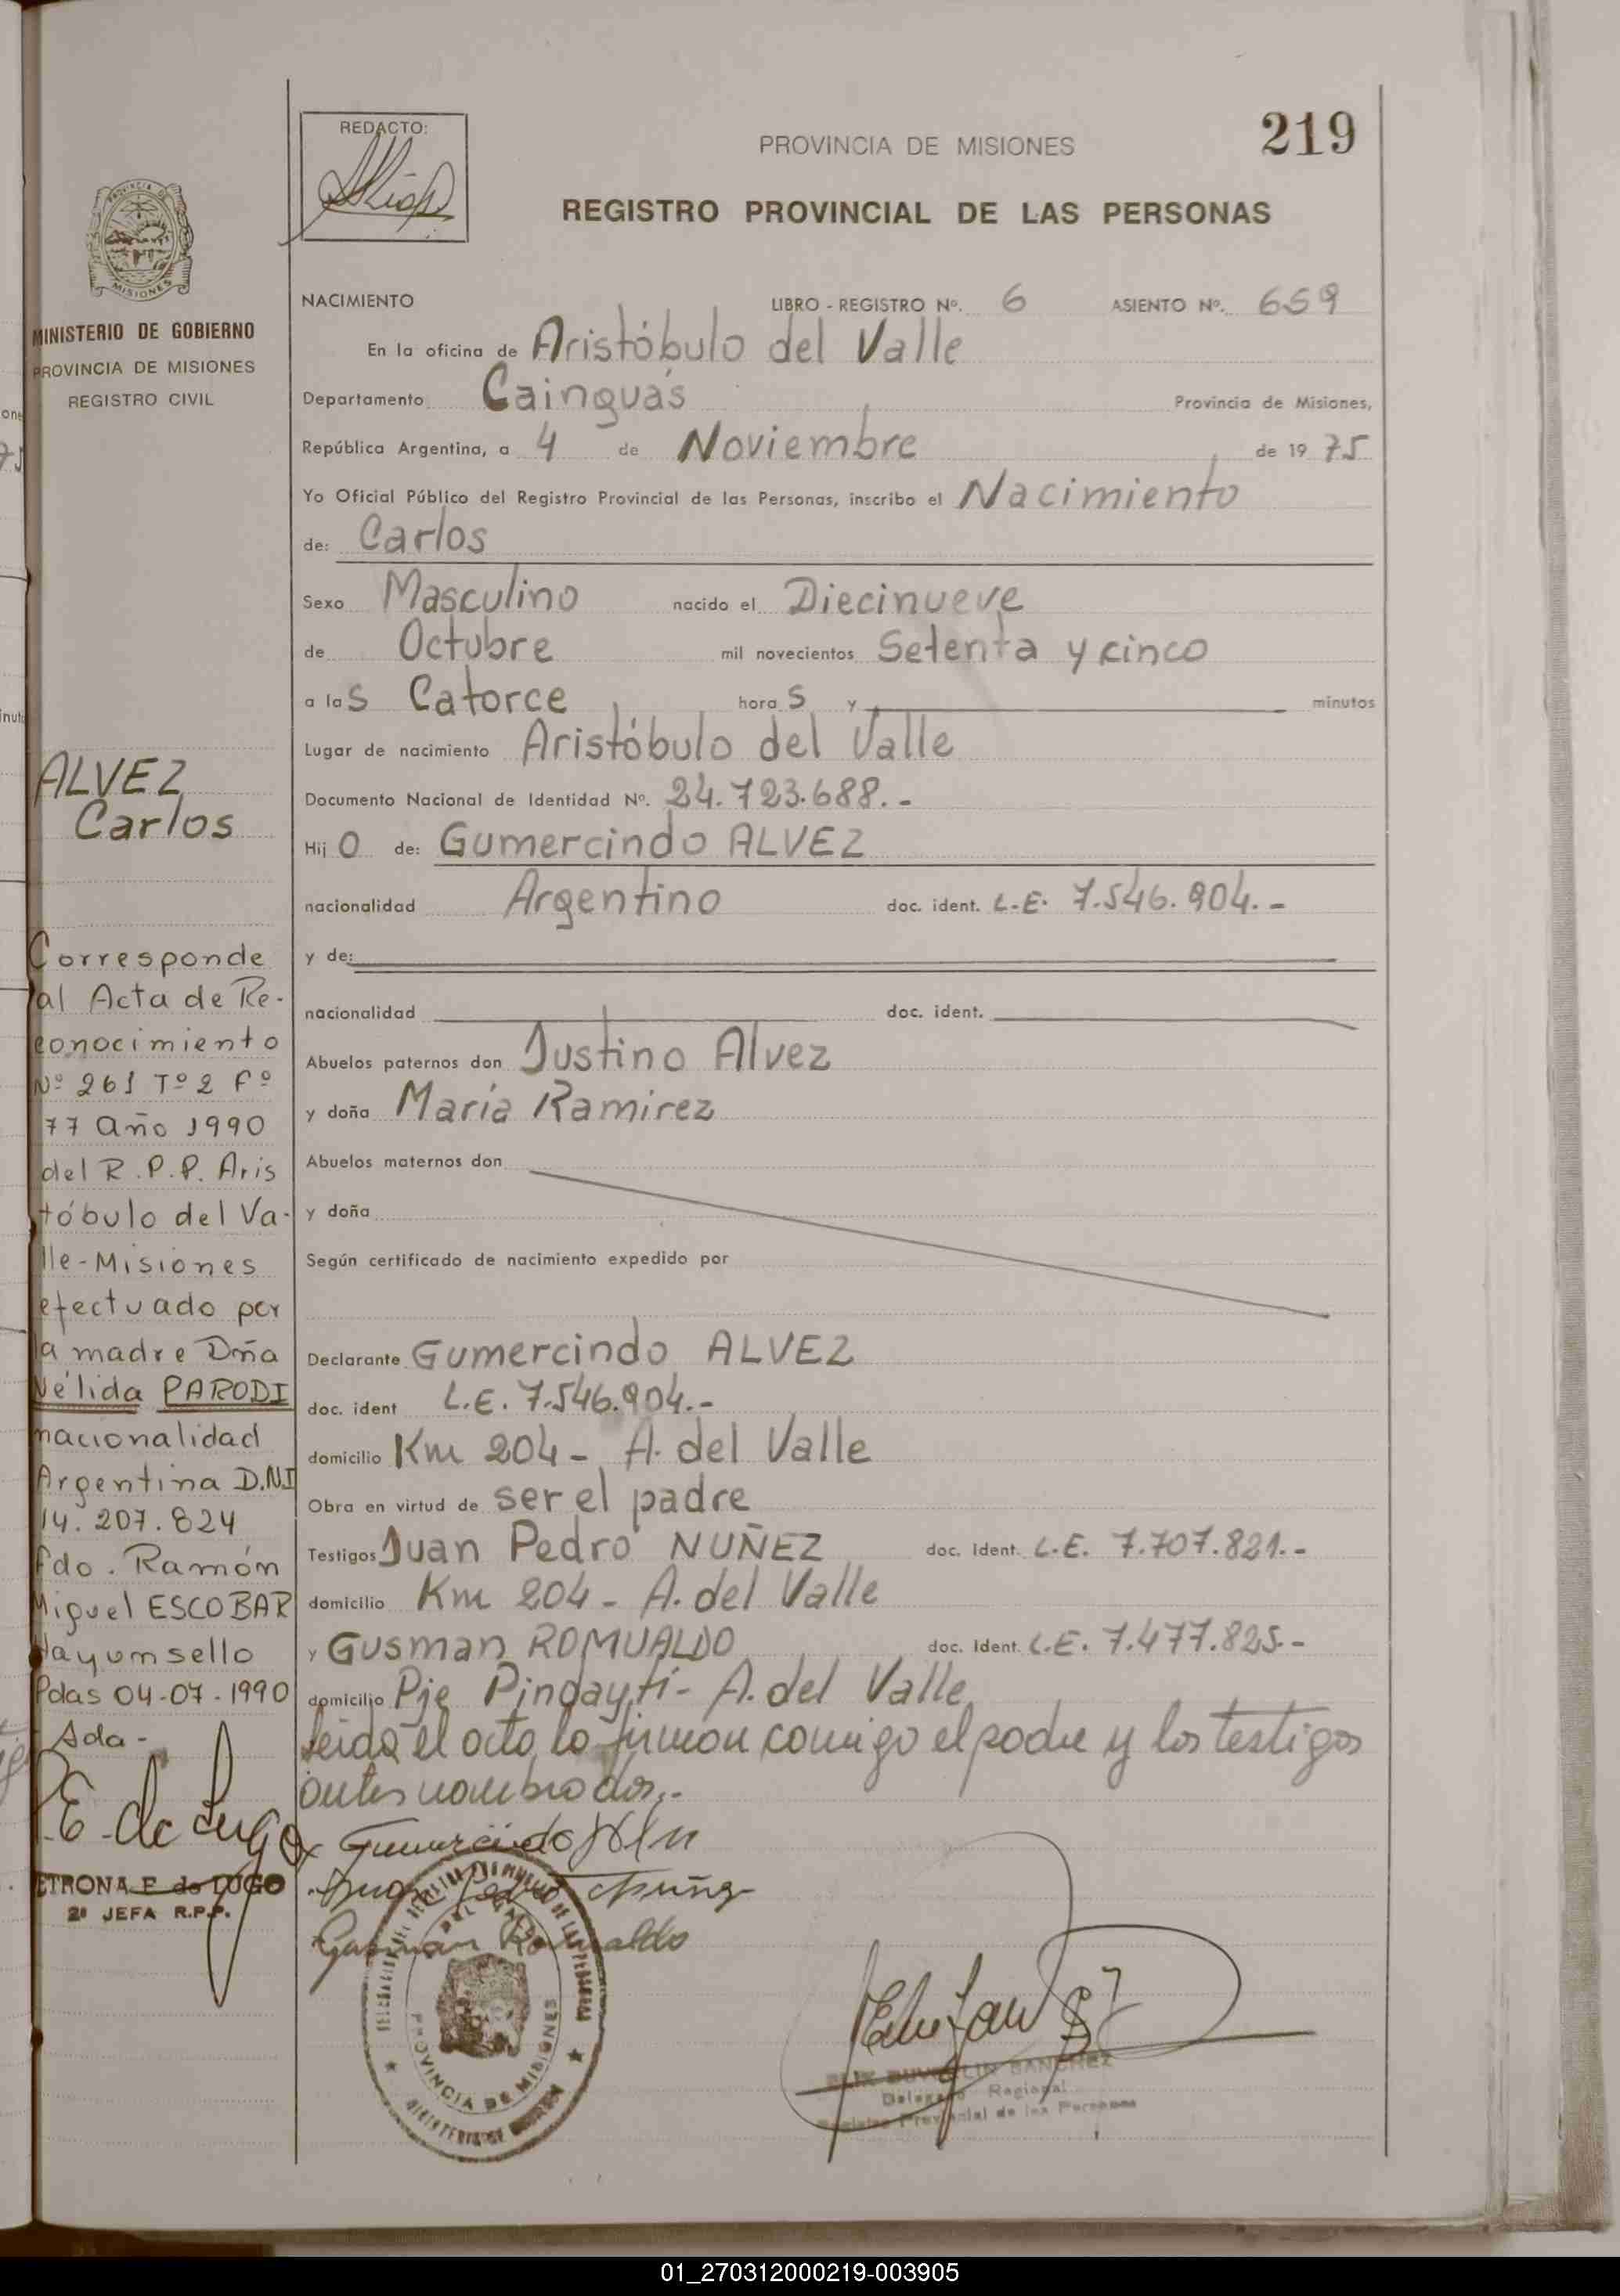 219
REDACTO:
PROVINCIA DE MISIONES
REGISTRO PROVINCIAL DE LAS PERSONAS
MISIONES
MINISTERIO DE GOBIERNO
PROVINCIA DE MISIONES
REGISTRO CIVIL
NACIMIENTO LIBRO - REGISTRO Nº. 6 ASIENTO Nº. 659
En la oficina de Aristóbulo del Valle
Departamento Cainguás Provincia de Misiones,
República Argentina, a 4 de Noviembre de 1975
Yo Oficial Público del Registro Provincial de las Personas, inscribo el Nacimiento
de: Carlos
Sexo Masculino nacido el Diecinueve
de Octubre mil novecientos Setenta y cinco
a las Catorce horas y minutos
Lugar de nacimiento Aristóbulo del Valle
Documento Nacional de Identidad Nº. 24.723.688.-
Hijo de: Gumercindo ALVEZ
nacionalidad Argentino doc. ident. L.E. 7.546.904.-
y de:
nacionalidad doc. ident.
Abuelos paternos don Justino Alvez
y doña María Ramirez
Abuelos maternos don
y doña
Según certificado de nacimiento expedido por
Declarante Gumercindo ALVEZ
doc. ident L.E. 7.546.904.-
domicilio Km 204 - A. del Valle
Obra en virtud de ser el padre
Testigos Juan Pedro NUÑEZ doc. Ident. L.E. 7.707.821.-
domicilio Km 204 - A. del Valle
y Gusman ROMUALDO doc. Ident. L.E. 7.477.825.-
domicilio Pje Pindaytí - A. del Valle
leída el acta, la firman conmigo el padre y los testigos
antes nombrados.-
ALVEZ
Carlos
Corresponde
al Acta de Re-
conocimiento
Nº 261 Tº 2 Fº
77 año 1990
del R.P.P. Aris
tóbulo del Va-
lle-Misiones
efectuado por
la madre Dña
Nélida PARODI
nacionalidad
Argentina D.N.I
14.207.824
fdo. Ramón
Miguel ESCOBAR
Hay un sello
Pdas 04-07-1990
Ada-
P.E. de Lugo
PETRONA E. de LUGO
2ª JEFA R.P.P.
Juan Pedro
Gusman Romualdo
PROVINCIA DE MISIONES
SANCHEZ
Delegado Regional
Registro Provincial de las Personas
01_270312000219-003905